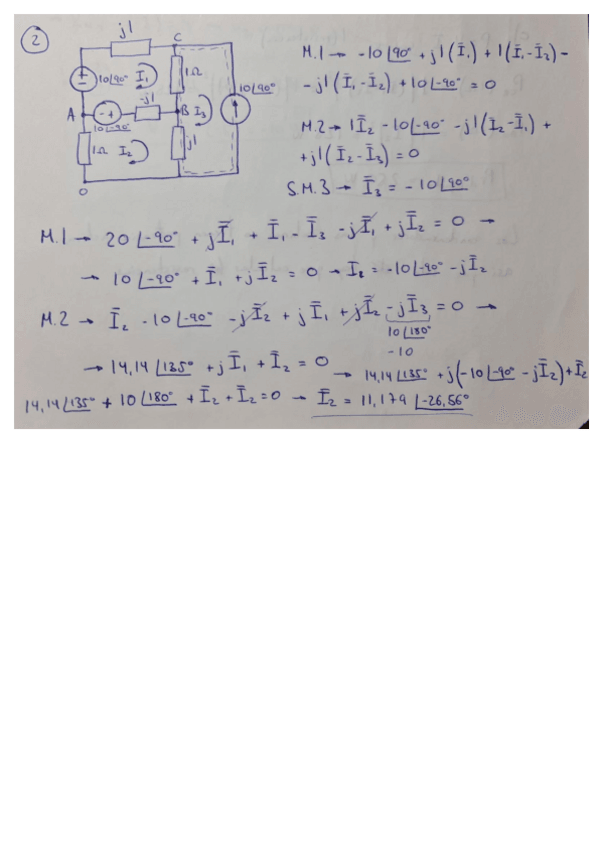 2
j1
C
1Ω
10∠90°
I̅₁
-j1
10∠90°
A
- +
B
I̅₃
10∠-90°
1Ω
I̅₂
j1
0
M.1 → -10∠90° + j1(I̅₁) + 1(I̅₁-I̅₂) -
- j1(I̅₁-I̅₂) + 10∠-90° = 0
M.2 → 1I̅₂ - 10∠-90° - j1(I̅₂-I̅₁) +
+ j1(I̅₂-I̅₃) = 0
S.M.3 → I̅₃ = -10∠90°
M.1 → 20∠-90° + jI̅₁ + I̅₁ - I̅₃ - jI̅₁ + jI̅₂ = 0 →
→ 10∠-90° + I̅₁ + jI̅₂ = 0 → I̅₂ = -10∠-90° - jI̅₂
M.2 → I̅₂ - 10∠-90° - jI̅₂ + jI̅₁ + jI̅₂ - jI̅₃ = 0 →
10∠180°
-10
→ 14,14∠135° + jI̅₁ + I̅₂ = 0
→ 14,14∠135° + j(-10∠-90° - jI̅₂) + I̅₂
14,14∠135° + 10∠180° + I̅₂ + I̅₂ = 0 → I̅₂ = 11,179∠-26,56°